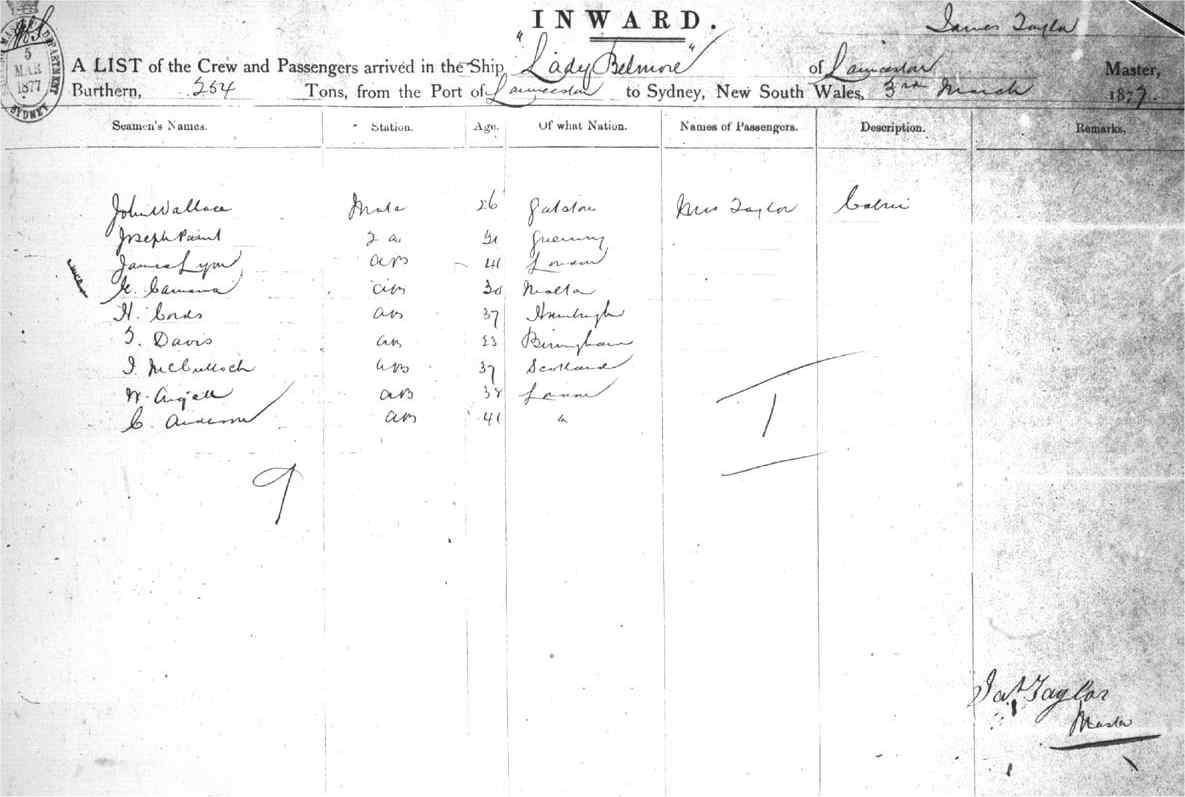 INWARD.
James Taylor
A LIST of the Crew and Passengers arrived in the Ship "Lady Belmore" of Launceston Master,
Burthern, 254 Tons, from the Port of Launceston to Sydney, New South Wales, 3rd March 1877.
5 MAR 1877 SYDNEY
Seamen's Names. Station. Age. Of what Nation. Names of Passengers. Description. Remarks.
John Wallace Mate 26 Mrs Taylor Cabin
Joseph 2 Guernsey
James Lyon AB 41 London
AB 30 Malta
H. Cords AB 37
Davis AB 23
McCulloch AB 37 Scotland
W. AB 38 London
C. Anderson AB 41 "
9
1
Jas Taylor
Master